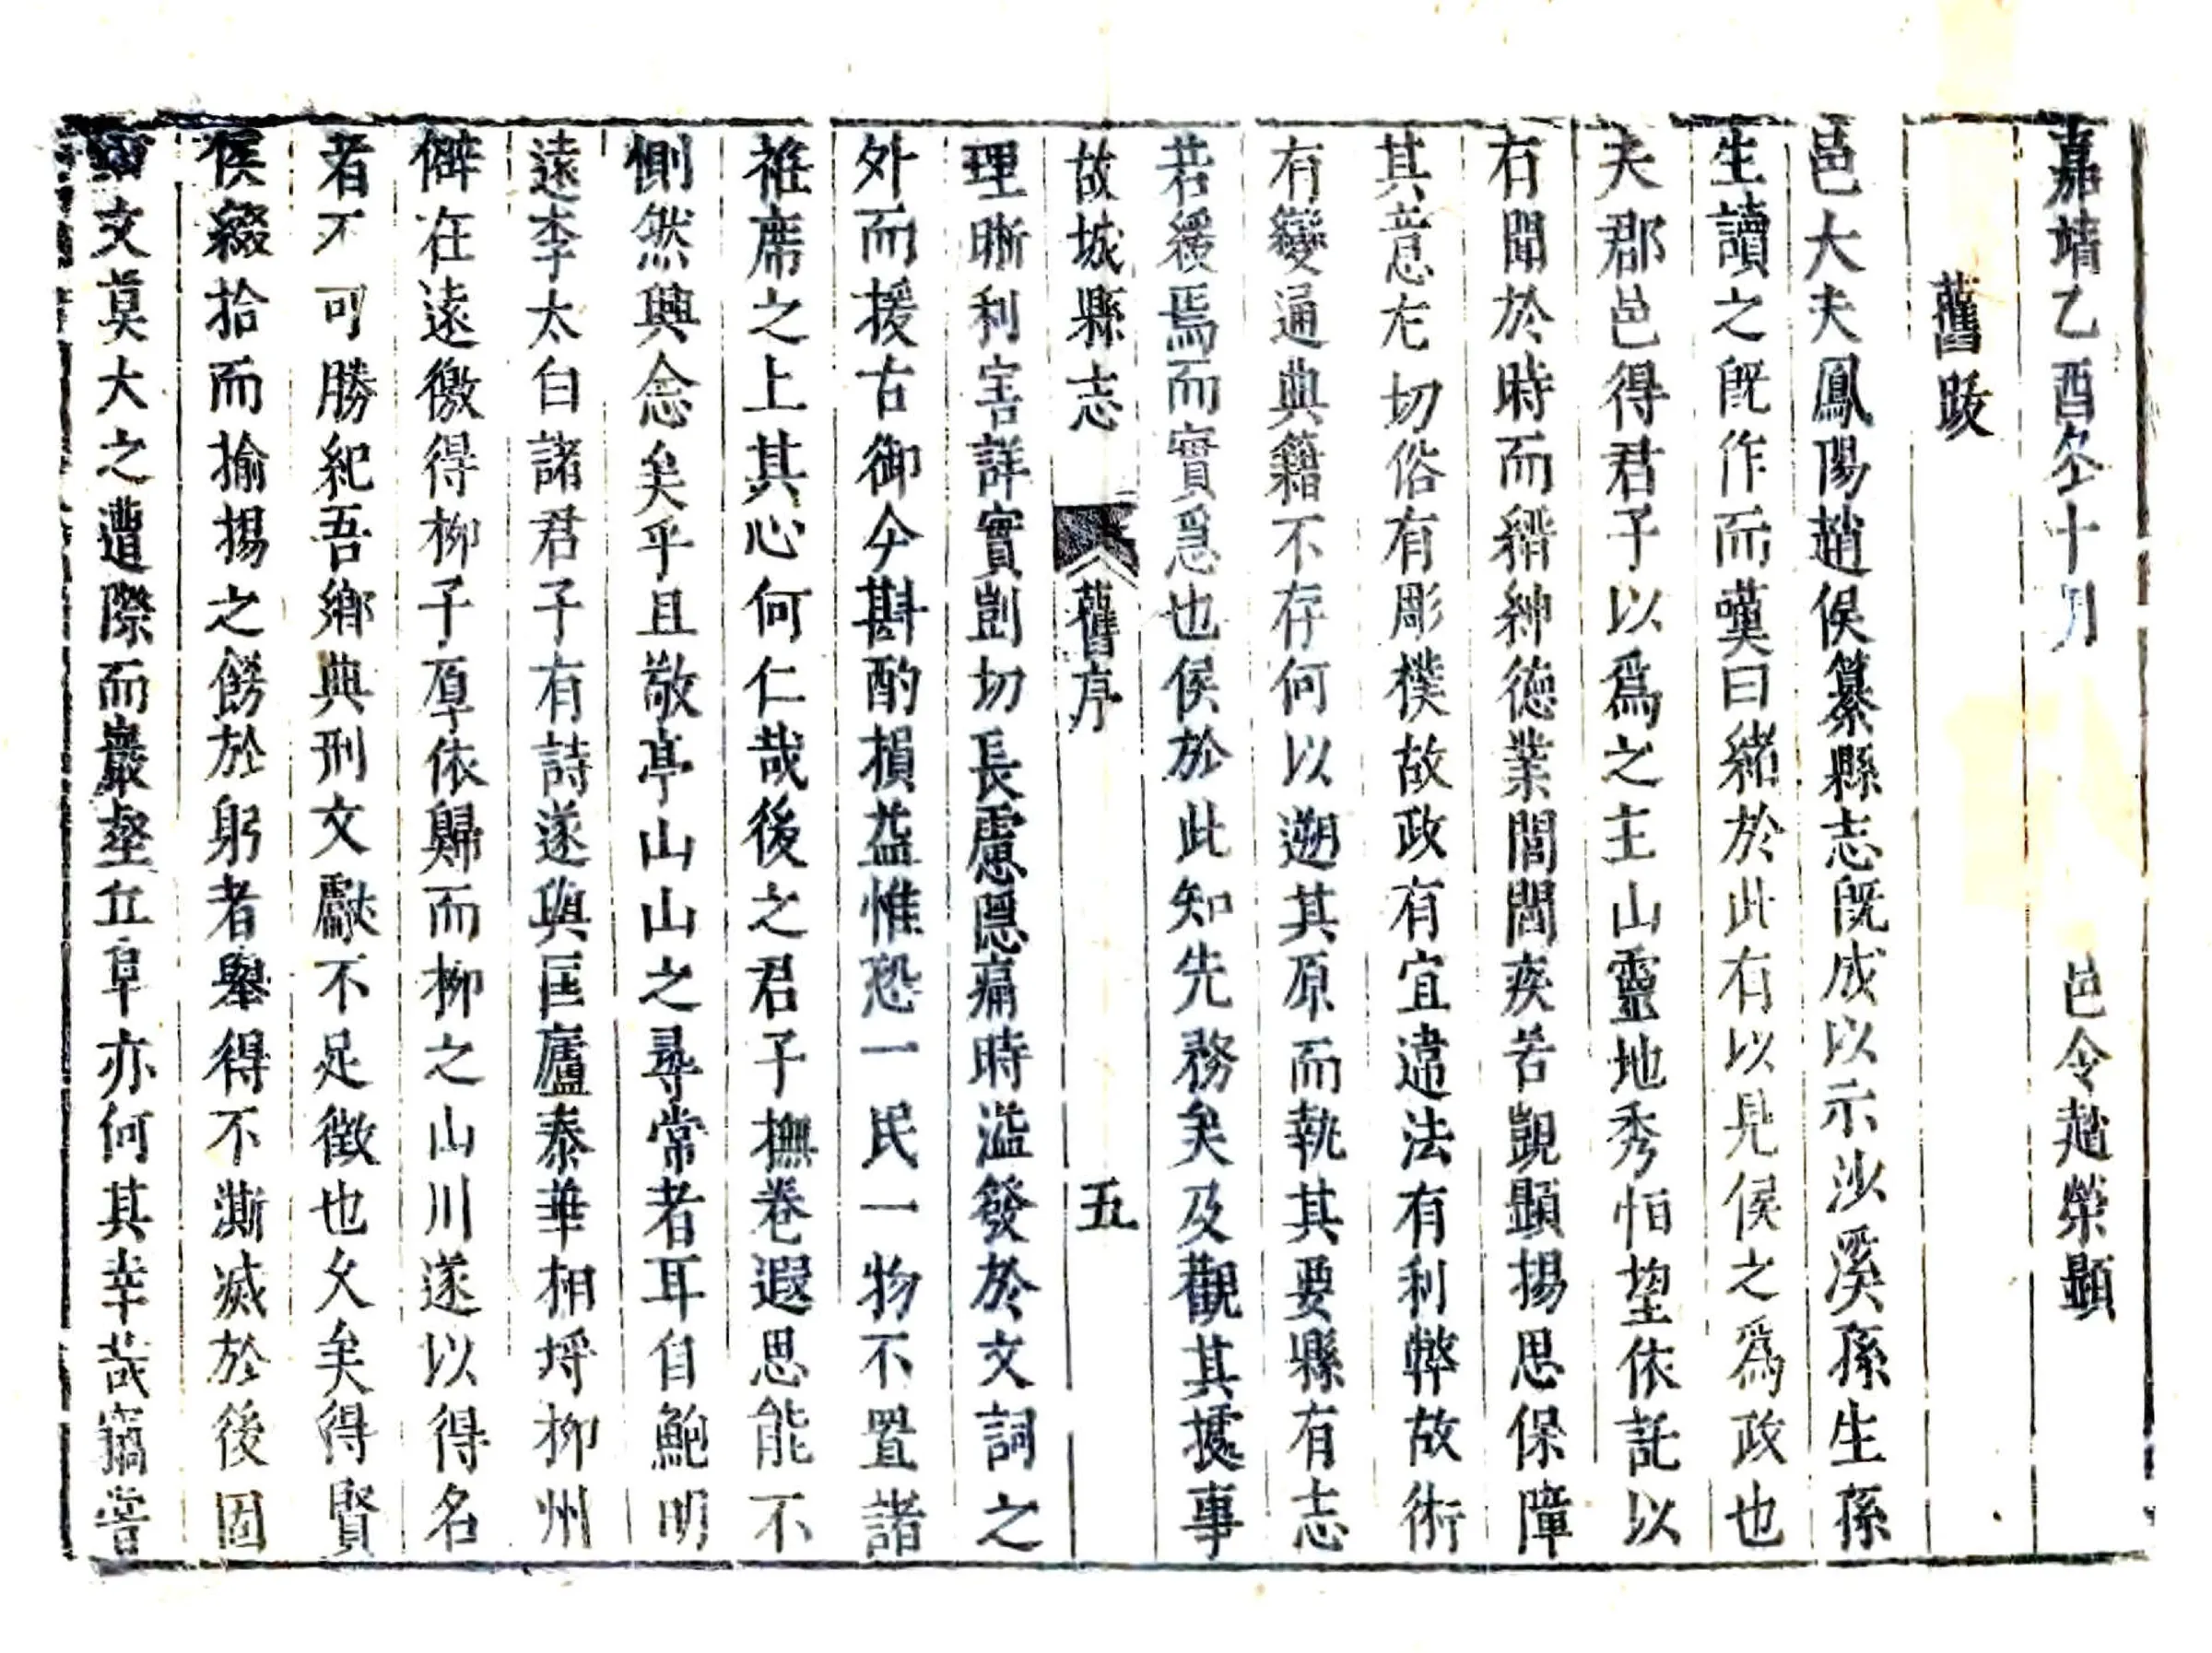 嘉靖乙酉冬十月 邑令趙榮顯
舊跋
邑大夫鳳陽趙侯纂縣志既成以示沙溪孫生孫
生讀之既作而嘆曰緒於此有以見侯之爲政也
夫郡邑得君子以爲之主山靈地秀怕望依託以
有聞於時而縉紳德業閭閻疾苦覬顯揚思保障
其意尤切俗有彫樸故政有宜違法有利弊故術
有變通典籍不存何以遡其原而執其要縣有志
若緩焉而實急也侯於此知先務矣及觀其據事
故城縣志 舊序 五
理晰利害詳實剴切長慮隱痛時溢發於文詞之
外而援古御今斟酌損益惟恐一民一物不置諸
袵席之上其心何仁哉後之君子撫卷遐思能不
惻然興念矣乎且敬亭山山之尋常者耳自鮑明
遠李太白諸君子有詩遂與匡廬泰華相埒柳州
僻在遠徼得柳子厚依歸而柳之山川遂以得名
者不可勝紀吾鄉典刑文獻不足徵也久矣得賢
侯綴拾而揄揚之餝於躬者舉得不澌滅於後因
文莫大之遭際而巖壑丘阜亦何其幸哉竊嘗